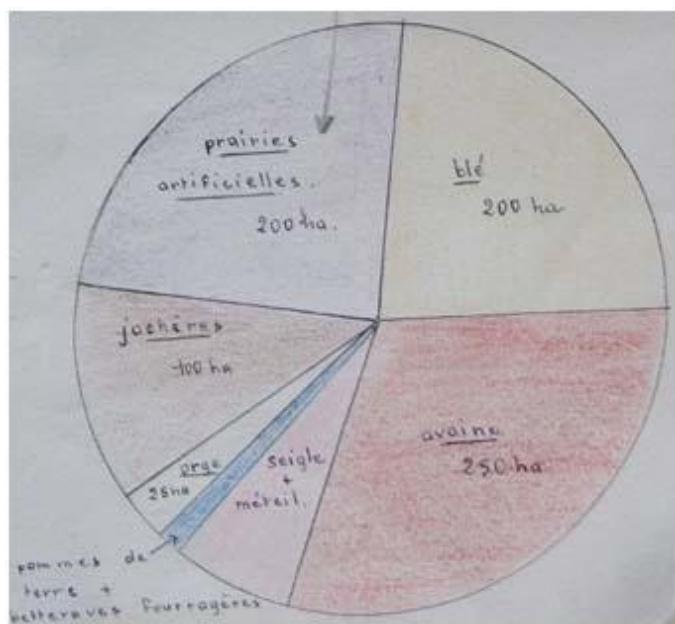 prairies
artificielles.
200 ha.
blé
200 ha
jachères
100 ha
avoine
250 ha
orge
25 ha
seigle
+
méteil.
pommes de
terre +
betteraves fourragères